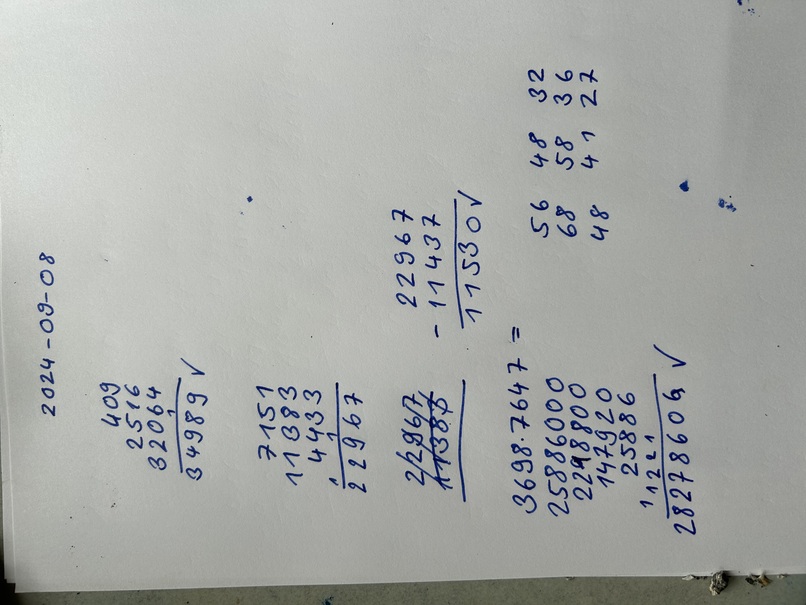 2024-09-08
409
2516
32064
1
34989 ✓
7151
11383
4433
1 1
22967
22967
- 11437
11530 ✓
3698·7647 =
25886000
2218800
147920
25886
1 1 2 2 1
28278606 ✓
56 48 32
68 58 36
48 41 27